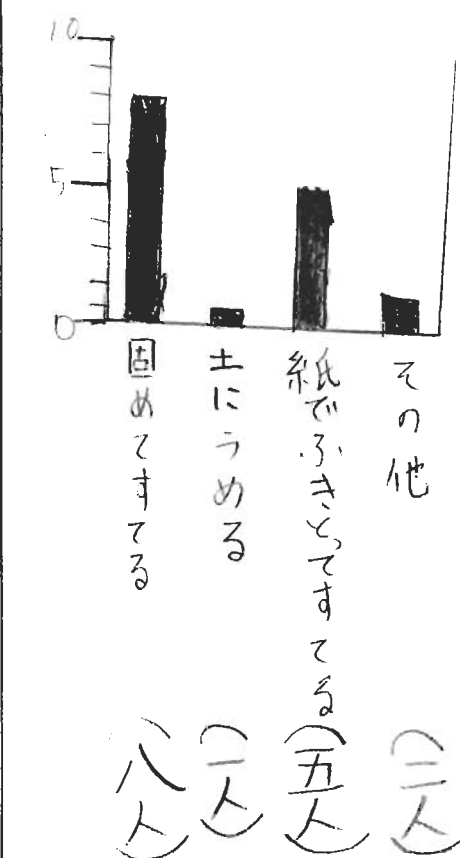 10
5
0
固めてすてる（八人）
土にうめる（一人）
紙でふきとってすてる（五人）
その他（二人）